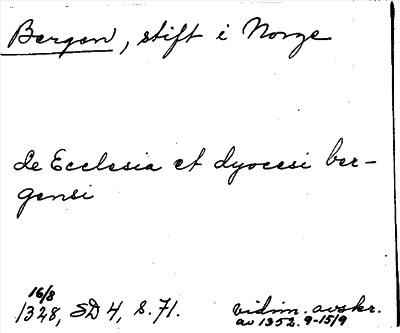 Bergen, stift i Norge
de Ecclesia et dyocesi ber-
gensi
16/8
1328, SD 4, s. 71.
vidim. avskr.
av 1352. 9-15/9